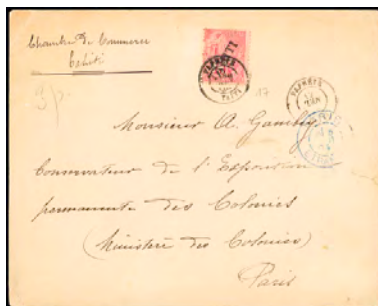 Chambre de Commerce
Tahiti
PAPEETE
TAITI
17
PAPEETE
Monsieur A. Gambey
Conservateur de l'Exposition
permanente des Colonies
(Ministère des Colonies)
Paris